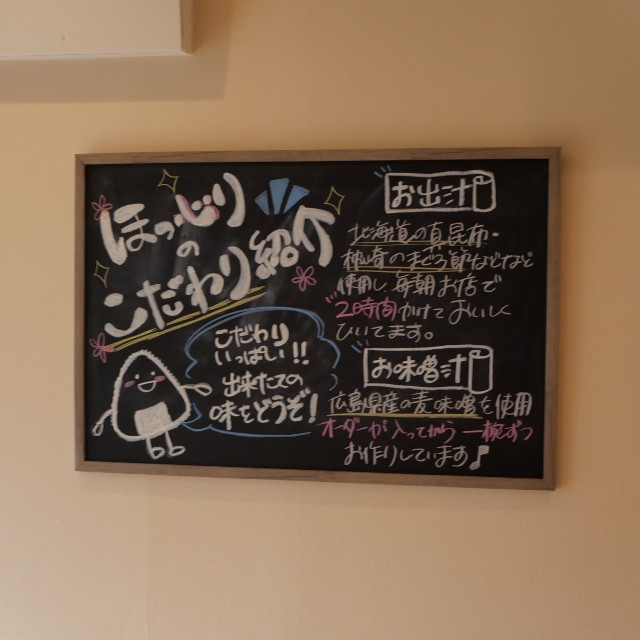 ほっじり
の
こだわり紹介
こだわり
いっぱい!!
出来たての
味をどうぞ!
お出汁
北海道の真昆布・
枕崎のまぐろ節などなど
使用し、毎朝お店で
2時間かけておいしく
ひいてます。
お味噌汁
広島県産の麦味噌を使用
オーダーが入ってから一椀ずつ
お作りしています♪